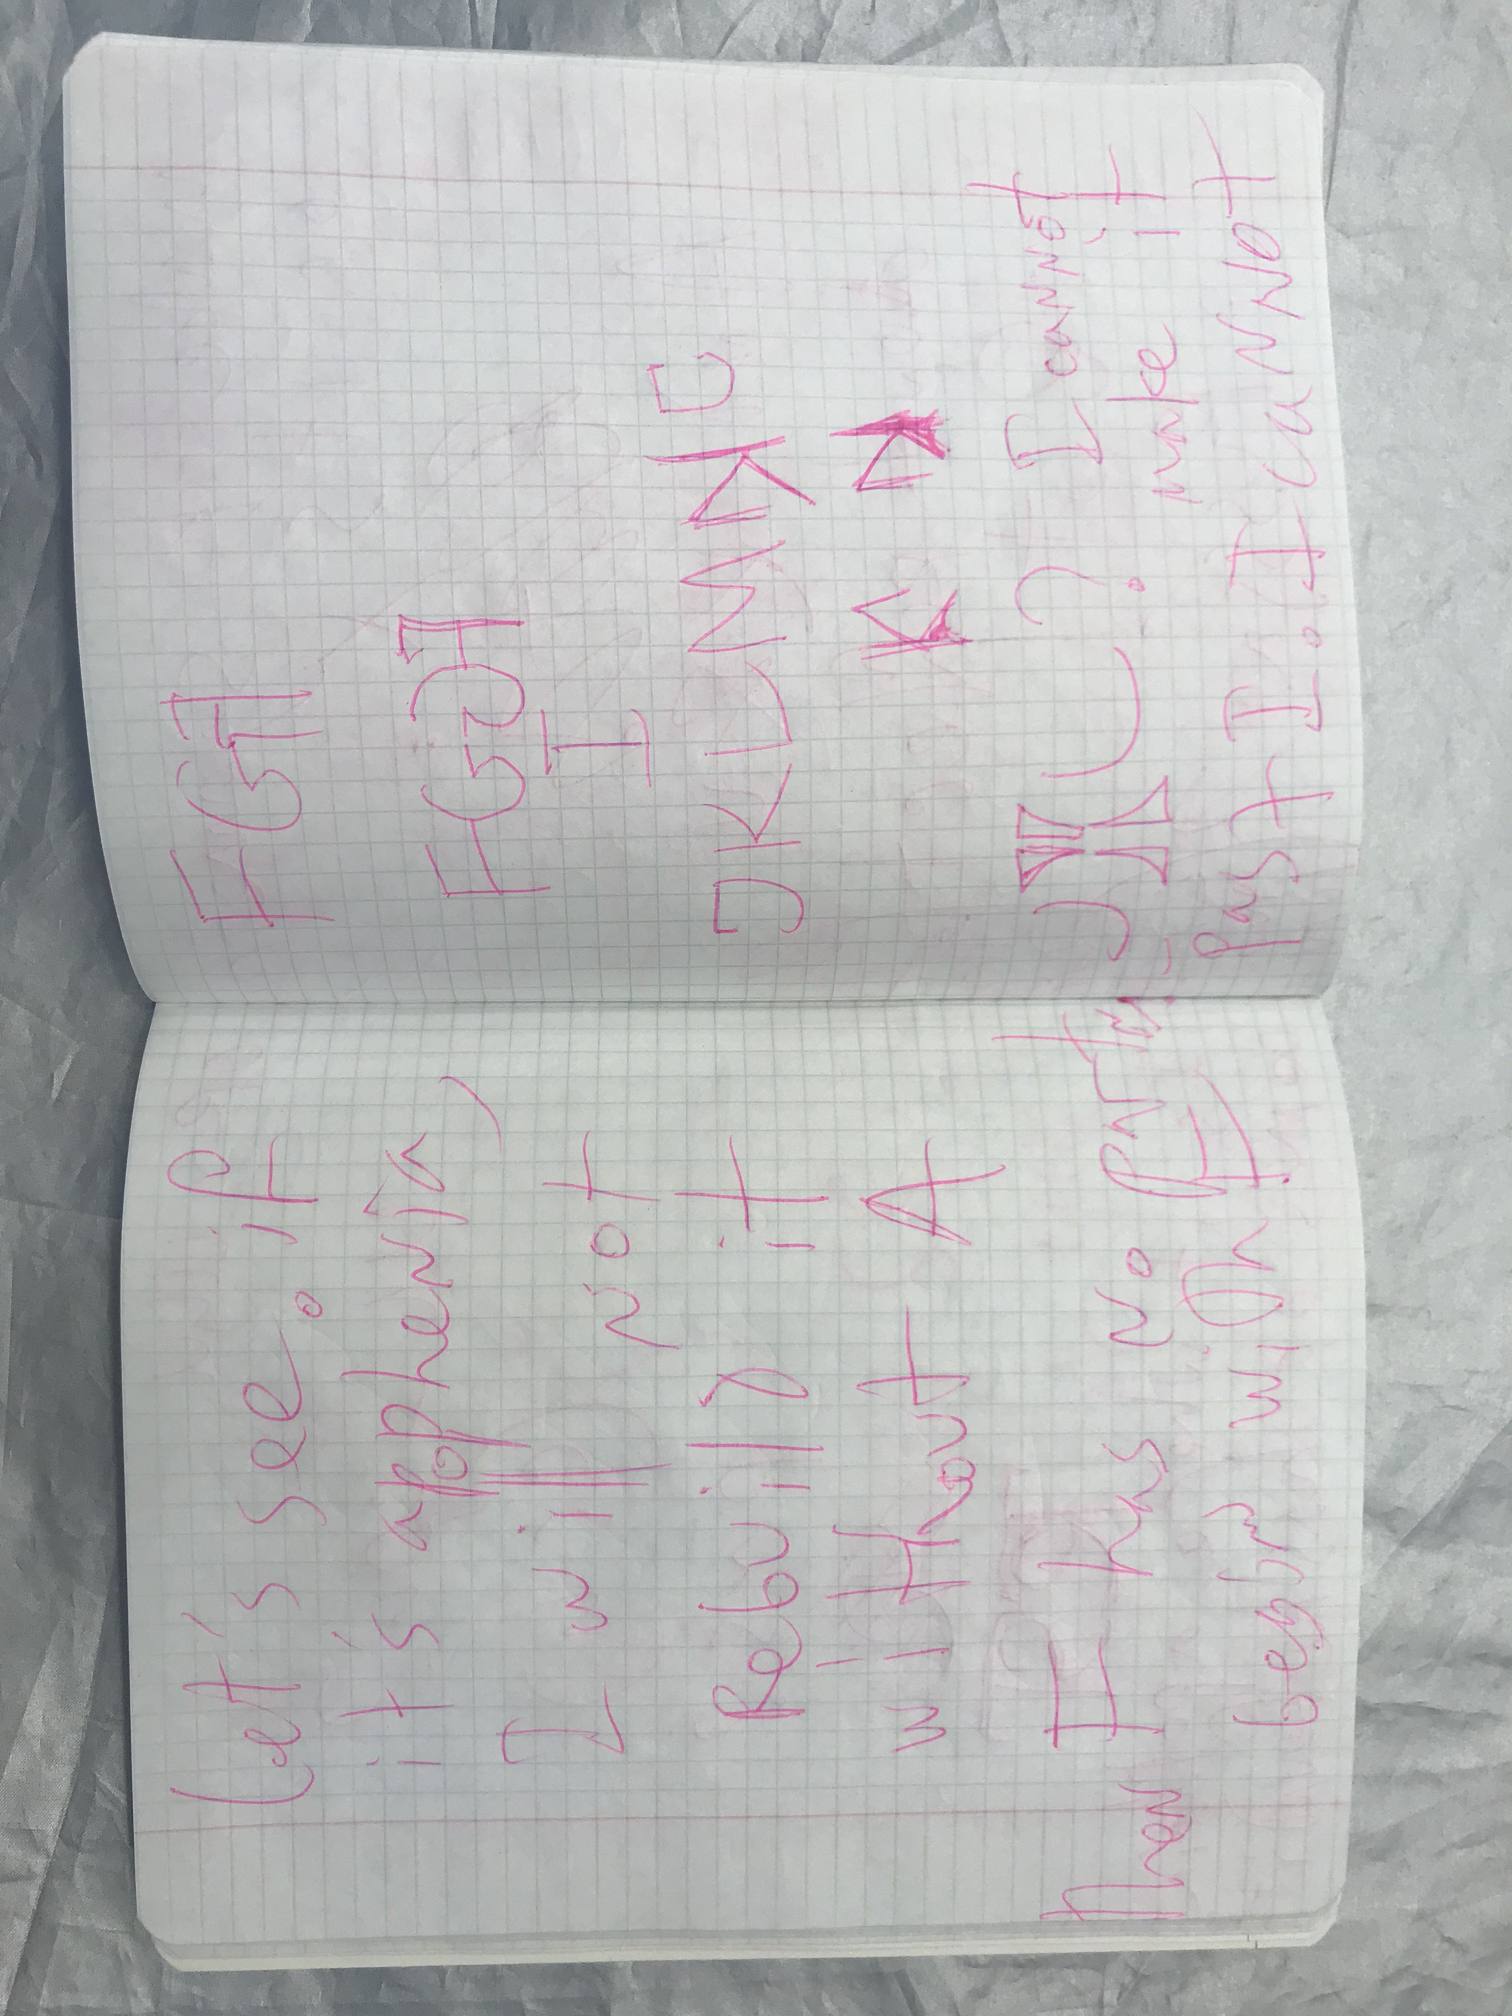 Let's see. if
it's apophenia,
I will not
Rebuild it
wiHout A
then F has no Partn-
begin with F
FG
FG
I
JKLMK
K
J L? I cannot
make it
past I. I caNNot